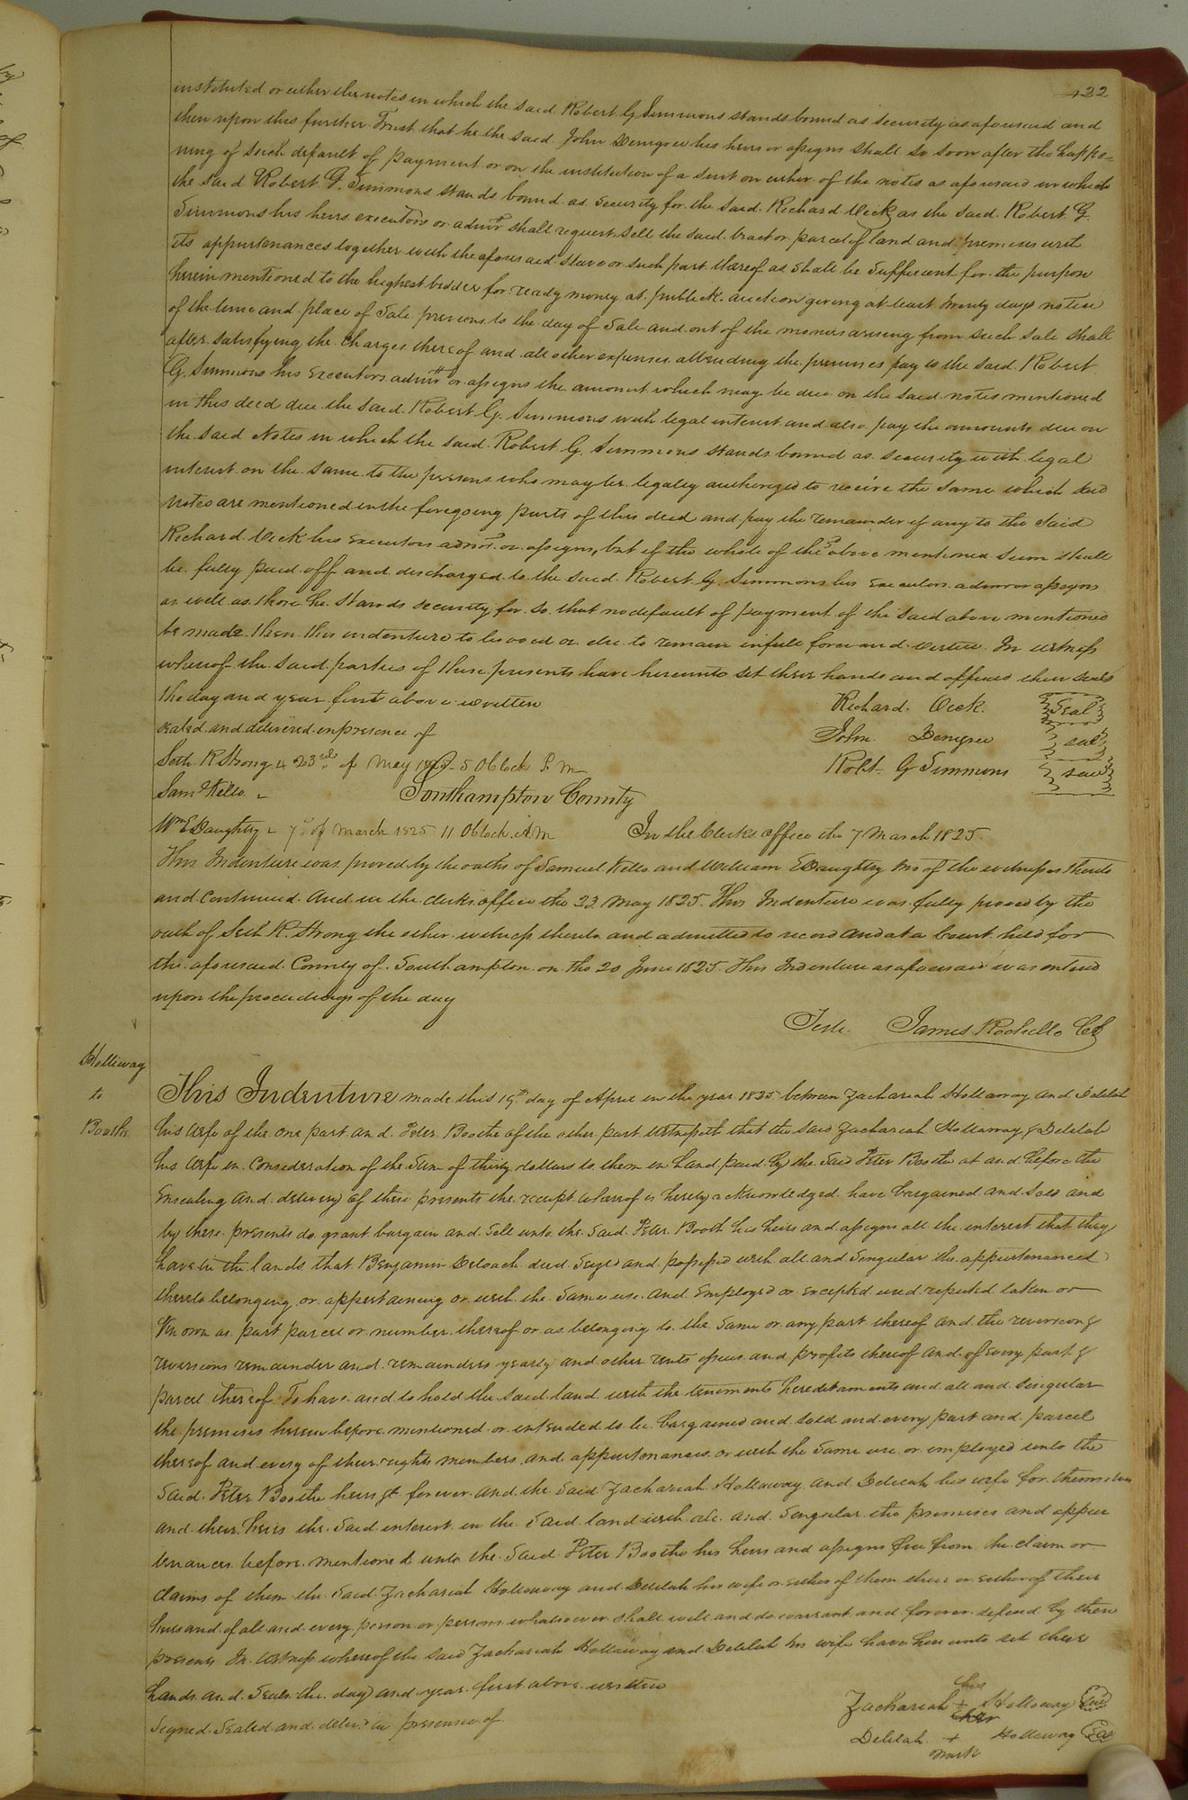 122
instituted or either the notes in which the said Robert G Simmons stands bound as security as aforesaid and
then upon this further Trust that he the said John Denegre his heirs or assigns shall so soon after the happe=
ning of such default of payment or on the institution of a suit on either of the notes as aforesaid in which
the said Robert G. Simmons stands bound as security for the said Richard Vick as the said Robert G.
Simmons his heirs executors or admrs shall request sell the said tract or parcel of land and premises with
its appurtenances together with the aforesaid slave or such part thereof as shall be sufficient for the purpose
herein mentioned to the highest bidder for ready money at publick auction giving at least twenty days notice
of the time and place of Sale previous to the day of Sale and out of the monies arising from such sale shall
after satisfying the Charges thereof and all other expenses attending the premises pay to the said Robert
G. Simmons his Executors admrs or assigns the amount which may be due on the said notes mentioned
in this deed due the said Robert G. Simmons with legal interest and also pay the amounts due on
the said Notes in which the said Robert G. Simmons stands bound as security with legal
interest on the same to the persons who may be legaly authorized to receive the same which said
notes are mentioned in the foregoing parts of this deed and pay the remainder if any to the said
Richard Vick his Executors admrs or assigns, but if the whole of the above mentioned sum shall
be fully paid off and discharged to the said Robert G. Simmons his executors admr or assigns
as well as those he Stands security for so that no default of payment of the said above mentioned
be made then this indenture to be void or else to remain in full force and vertue In witness
whereof the said parties of these presents have hereunto set their hands and affixed their seals
the day and year first above written Richard Vick. Seal
sealed and delivered in presence of John Denegre seal
Seth R Strong 4 23rd of May 1825 5 O Clock P.m Robt G Simmons seal
Saml Kello Southampton County
Wm E Daughtry 7th of March 1825 11 O Clock A.M In the Clerks office the 7 March 1825
This Indenture was proved by the oaths of Samuel Kello and William E Daughtry two of the witnesses thereto
and Continued And in the clerks office the 23 May 1825. This Indenture was fully proved by the
oath of Seth R. Strong the other witness thereto and admitted to record And at a Court held for
the aforesaid County of Southampton on the 20 June 1825 This Indenture as aforesaid was entered
upon the proceedings of the day
Teste James Rochelle CC
Holleway
to
Booth
This Indenture made this 19th day of April in the year 1825 between Zachariah Holloway and Delilah
his wife of the one part and Peter Boothe of the other part Witnesseth that the said Zachariah Holloway & Delilah
his wife in Consideration of the Sum of thirty dollars to them in hand paid by the Said Peter Boothe at and before the
Ensealing and delivery of these presents the receipt whereof is hereby acknowledged have bargained and sold and
by these presents do grant bargain and Sell unto the Said Peter Booth his heirs and assigns all the interest that they
have in the lands that Benjamin Deloach died Seized and possessed with all and Singular the appurtenances
thereto belonging or appertaining or with the Same use and Employed or excepted used reputed taken or
Known as part parcel or number thereof or as belonging to the Same or any part thereof and the reversion &
reversions remainder and remainders yearly and other rents issues and profits thereof and of every part &
parcel thereof To have and to hold the said land with the tenements hereditaments and all and Singular
the premises herein before mentioned or intended to be bargained and sold and every part and parcel
thereof and every of their rights members and appurtenances or with the Same use or employed unto the
Said Peter Boothe heirs &c forever and the Said Zachariah Holloway and Delilah his wife for themselves
and their heirs the Said interest in the Said land with all and Singular the premises and appur
tenances before mentioned unto the Said Peter Boothe his heirs and assigns free from the claim or
claims of them the Said Zachariah Holloway and Delilah his wife or either of them their or either of their
heirs and of all and every person or persons whatsoever shall will and do warrant and forever defend by these
presents In Witness whereof the said Zachariah Holloway and Delilah his wife have hereunto set their
hands and Seals the day and year first above written
his
Zachariah + Holloway Seal
Signed Sealed and delivd in presence of
her
Delilah + Holloway Seal
mark